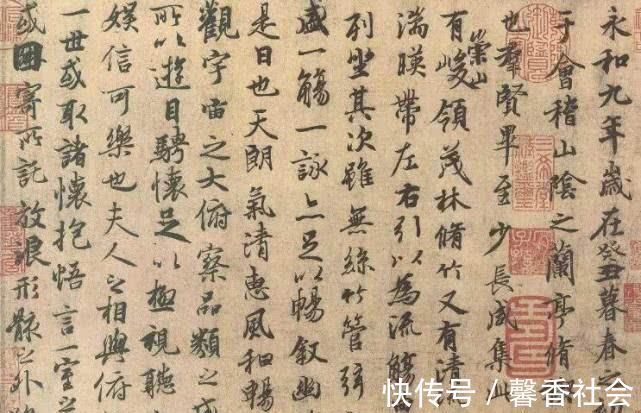 永和九年歲在癸丑暮春之
于會稽山陰之蘭亭脩
也羣賢畢至少長咸集此
崇山
有峻領茂林脩竹又有清
湍暎帶左右引以為流觴
列坐其次雖無絲竹管弦
盛一觴一詠亦足以暢叙幽
是日也天朗氣清惠風和暢
觀宇宙之大俯察品類之
所以遊目騁懷足以極視聽
娛信可樂也夫人之相與俯
一世或取諸懷抱悟言一室之
或因寄所託放浪形骸之外
快传号 / 馨香社会